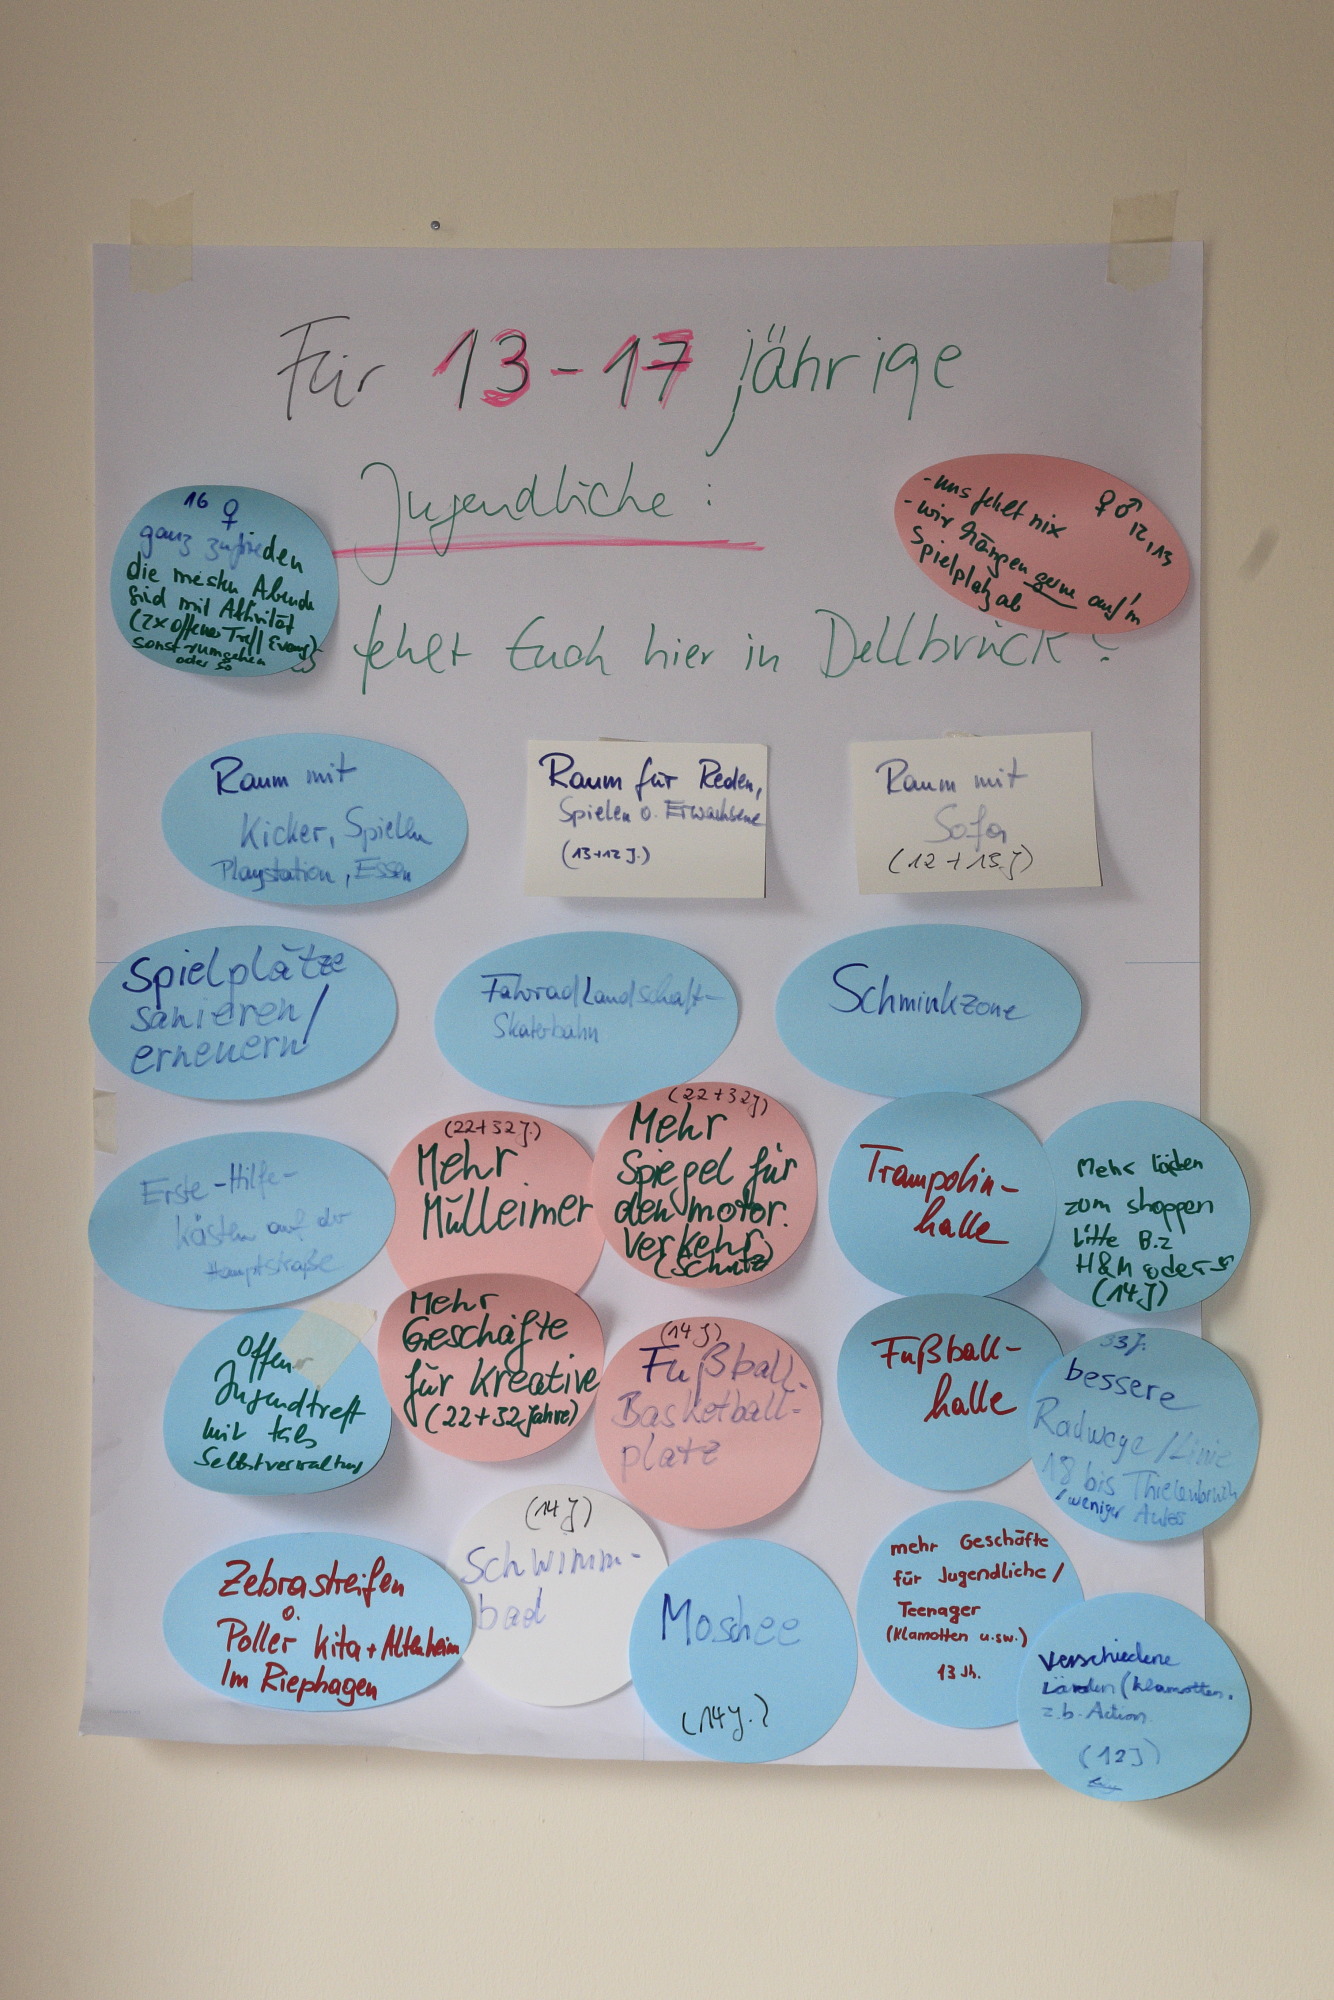 Für 13-17 jährige
Jugendliche:
fehlt Euch hier in Dellbrück?
16 ♀
ganz zufrieden
die meisten Abende
sind mit Aktivität
(2x Offener Treff Evang)
sonst rumgehen
oder so
- uns fehlt nix ♀♂ 12,13
- wir hängen gerne auf'm
Spielplatz ab
Raum mit
Kicker, Spielen
Playstation, Essen
Raum für Reden,
Spielen o. Erwachsene
(13+12 J.)
Raum mit
Sofa
(12 + 13 J)
Spielplätze
sanieren/
erneuern
Fahrradlandschaft-
Skaterbahn
Schminkzone
Erste-Hilfe-
kästen auf der
Hauptstraße
(22+32 J.)
Mehr
Mülleimer
(22+32 J)
Mehr
Spiegel für
den motor.
verkehr
(Schutz)
Trampolin-
halle
Mehr läden
zum shoppen
bitte B.z
H&M oder so
(14 J)
Offener
Jugendtreff
mit teils
Selbstverwaltung
Mehr
Geschäfte
für Kreative
(22+32 Jahre)
(14 J)
Fußball-
Basketball-
platz
Fußball-
halle
33 J.
bessere
Radwege/Linie
18 bis Thielenbruch
/weniger Autos
Zebrastreifen
o.
Poller Kita + Altenheim
Im Riephagen
(14 J)
Schwimm-
bad
Moschee
(14 J.)
mehr Geschäfte
für Jugendliche/
Teenager
(Klamotten u.sw.)
13 Jh.
verschiedene
Länden (Klamotten,
z.b. Action
(12 J)